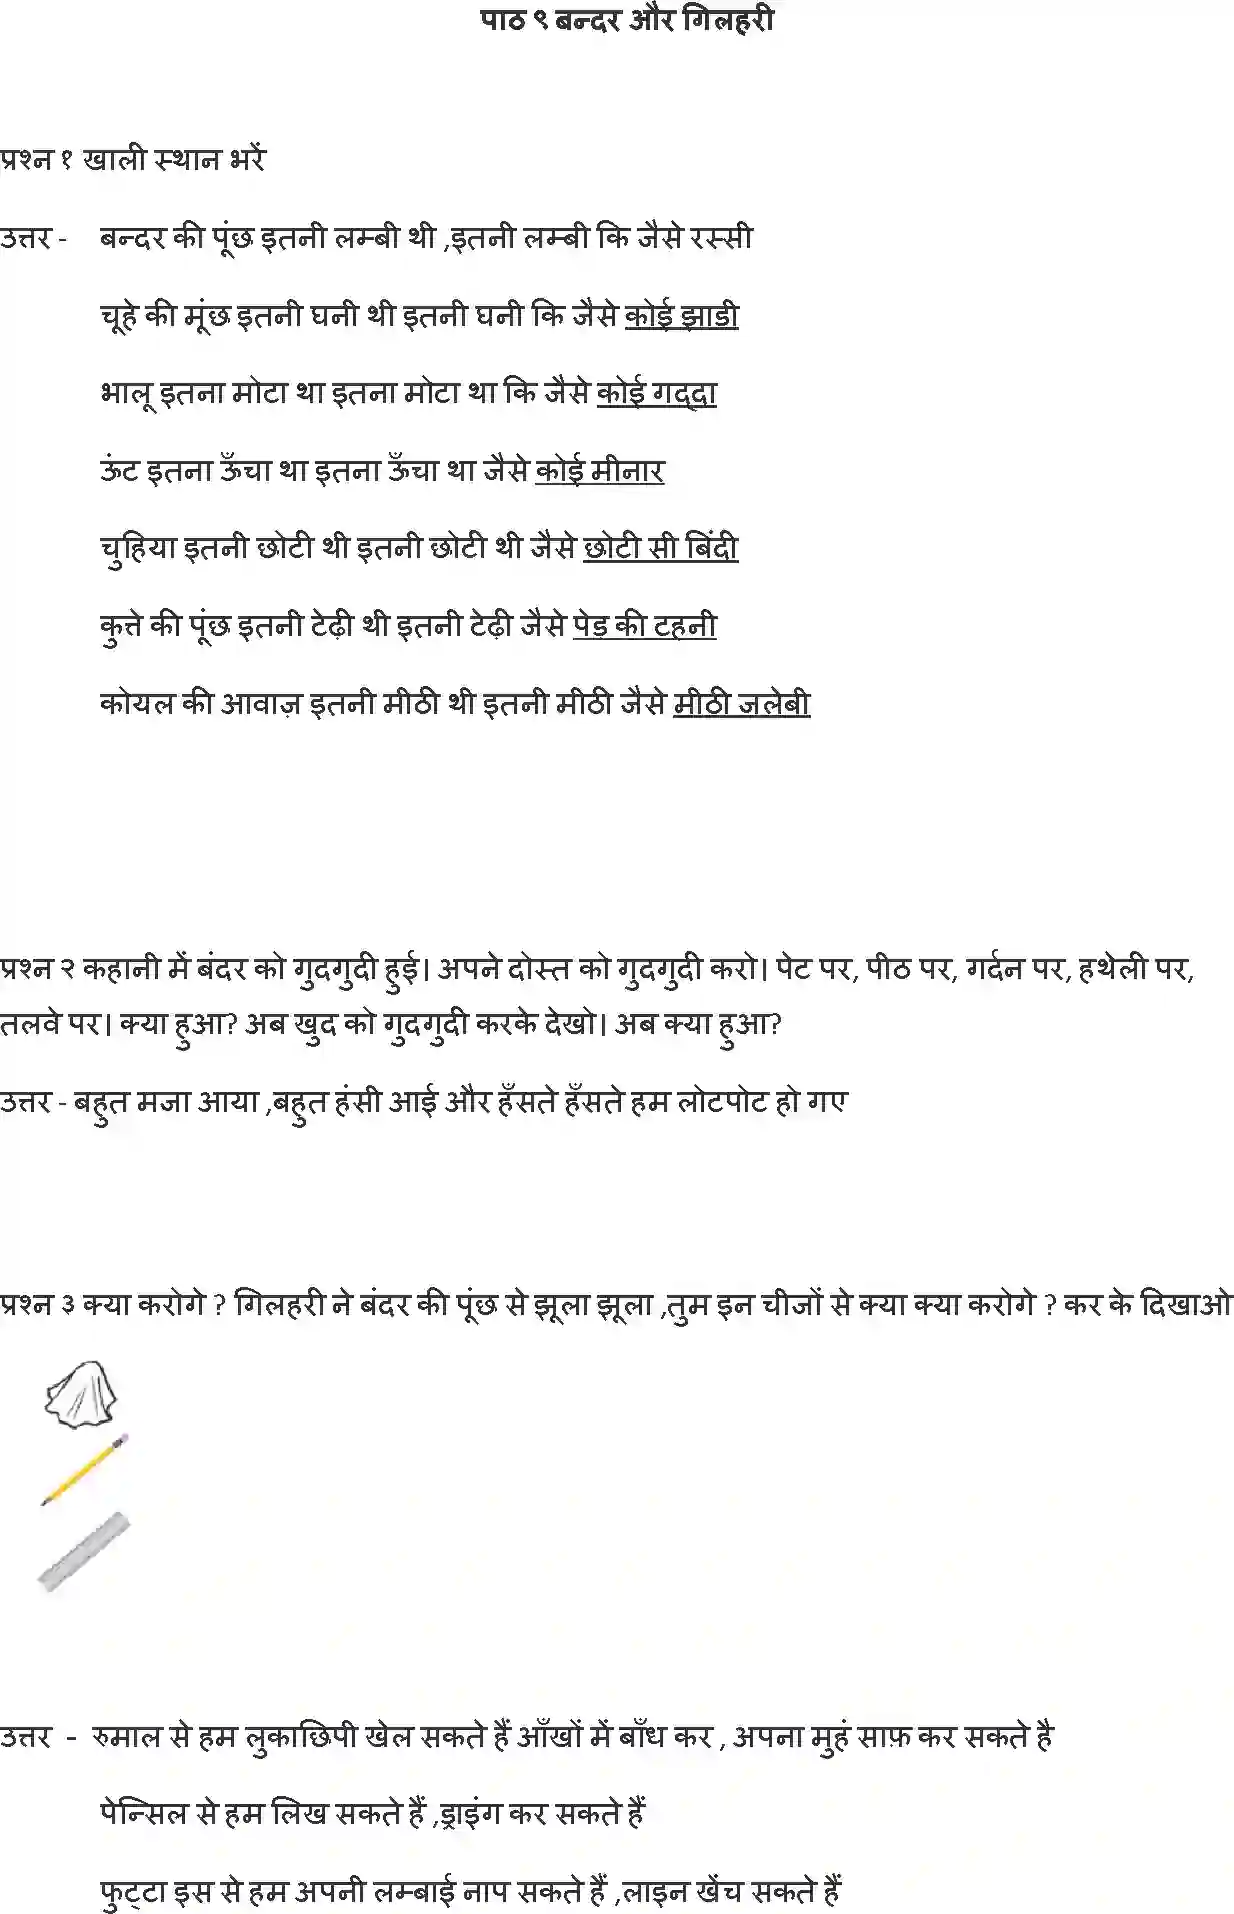 पाठ ९ बन्दर और गिलहरी
प्रश्न १ खाली स्थान भरें
उत्तर - बन्दर की पूंछ इतनी लम्बी थी ,इतनी लम्बी कि जैसे रस्सी
चूहे की मूंछ इतनी घनी थी इतनी घनी कि जैसे कोई झाडी
भालू इतना मोटा था इतना मोटा था कि जैसे कोई गद्दा
ऊंट इतना ऊँचा था इतना ऊँचा था जैसे कोई मीनार
चुहिया इतनी छोटी थी इतनी छोटी थी जैसे छोटी सी बिंदी
कुत्ते की पूंछ इतनी टेढ़ी थी इतनी टेढ़ी जैसे पेड़ की टहनी
कोयल की आवाज़ इतनी मीठी थी इतनी मीठी जैसे मीठी जलेबी
प्रश्न २ कहानी में बंदर को गुदगुदी हुई। अपने दोस्त को गुदगुदी करो। पेट पर, पीठ पर, गर्दन पर, हथेली पर,
तलवे पर। क्या हुआ? अब खुद को गुदगुदी करके देखो। अब क्या हुआ?
उत्तर - बहुत मजा आया ,बहुत हंसी आई और हँसते हँसते हम लोटपोट हो गए
प्रश्न ३ क्या करोगे ? गिलहरी ने बंदर की पूंछ से झूला झूला ,तुम इन चीजों से क्या क्या करोगे ? कर के दिखाओ
उत्तर - रुमाल से हम लुकाछिपी खेल सकते हैं आँखों में बाँध कर , अपना मुहं साफ़ कर सकते है
पेन्सिल से हम लिख सकते हैं ,ड्राइंग कर सकते हैं
फुट्टा इस से हम अपनी लम्बाई नाप सकते हैं ,लाइन खेंच सकते हैं